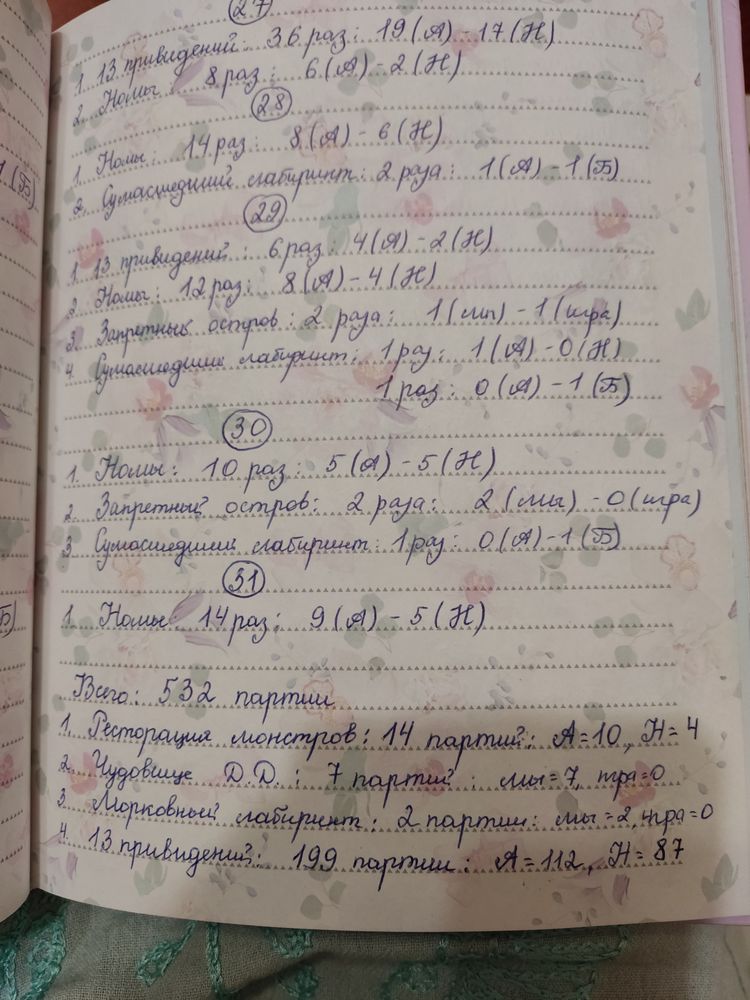 27
1. 13 привидений: 36 раз: 19 (А) - 17 (Н)
2. Номы: 8 раз: 6 (А) - 2 (Н)
28
1. Номы: 14 раз: 8 (А) - 6 (Н)
2. Сумасшедший лабиринт: 2 раза: 1 (А) - 1 (Б)
29
1. 13 привидений: 6 раз: 4 (А) - 2 (Н)
2. Номы: 12 раз: 8 (А) - 4 (Н)
3. Запретный остров: 2 раза: 1 (мы) - 1 (игра)
4. Сумасшедший лабиринт: 1 раз: 1 (А) - 0 (Н)
1 раз: 0 (А) - 1 (Б)
30
1. Номы: 10 раз: 5 (А) - 5 (Н)
2. Запретный остров: 2 раза: 2 (мы) - 0 (игра)
3 Сумасшедший лабиринт: 1 раз: 0 (А) - 1 (Б)
31
1. Номы: 14 раз: 9 (А) - 5 (Н)
Всего: 532 партии
1. Ресторация монстров: 14 партий: А=10, Н=4
2. Чудовище Д.Д.: 7 партий: мы=7, игра=0
3. Морковный лабиринт: 2 партии: мы=2, игра=0
4. 13 привидений: 199 партии: А=112, Н=87